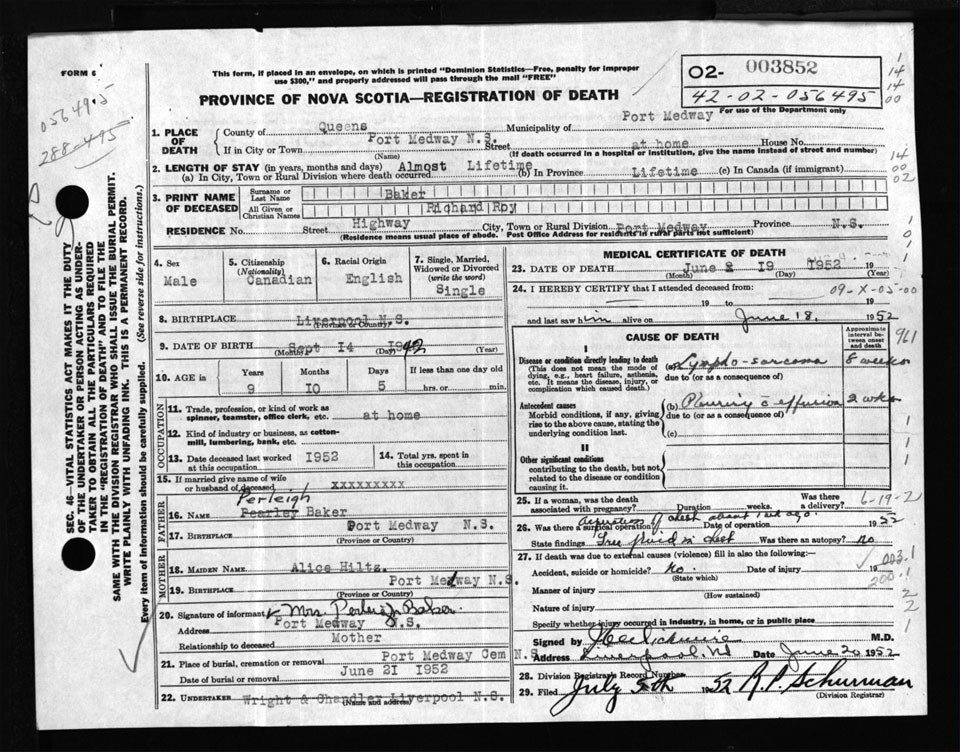 FORM 6
This form, if placed in an envelope, on which is printed "Dominion Statistics—Free, penalty for improper
use $300," and properly addressed will pass through the mail "FREE"
PROVINCE OF NOVA SCOTIA—REGISTRATION OF DEATH
02- 003852
42-02-056495
For use of the Department only
056495
288-495
1
14
14
00
14
00
02
SEC. 46—VITAL STATISTICS ACT MAKES IT THE DUTY
OF THE UNDERTAKER OR PERSON ACTING AS UNDER-
TAKER TO OBTAIN ALL THE PARTICULARS REQUIRED
IN THE "REGISTRATION OF DEATH" AND TO FILE THE
SAME WITH THE DIVISION REGISTRAR WHO SHALL ISSUE THE BURIAL PERMIT.
WRITE PLAINLY WITH UNFADING INK. THIS IS A PERMANENT RECORD.
Every item of information should be carefully supplied. (See reverse side for instructions.)
1. PLACE OF DEATH
County of Queens Municipality of Port Medway
If in City or Town Port Medway N.S. Street at home House No.
(Name) (If death occurred in a hospital or institution, give the name instead of street and number)
2. LENGTH OF STAY (in years, months and days) Almost Lifetime
(a) In City, Town or Rural Division where death occurred (b) In Province Lifetime (c) In Canada (if immigrant)
3. PRINT NAME OF DECEASED
Surname or Last Name Baker
All Given or Christian Names Richard Roy
RESIDENCE No. Street Highway City, Town or Rural Division Port Medway Province N.S.
(Residence means usual place of abode. Post Office Address for residents in rural parts not sufficient)
4. Sex Male
5. Citizenship (Nationality) Canadian
6. Racial Origin English
7. Single, Married, Widowed or Divorced (write the word) Single
8. BIRTHPLACE Liverpool N.S.
(Province or Country)
9. DATE OF BIRTH Sept 14 1942
(Month) (Day) (Year)
10. AGE in Years 9 Months 10 Days 5 If less than one day old hrs. or min.
OCCUPATION
11. Trade, profession, or kind of work as spinner, teamster, office clerk, etc. at home
12. Kind of industry or business, as cotton-mill, lumbering, bank, etc.
13. Date deceased last worked at this occupation 1952
14. Total yrs. spent in this occupation
15. If married give name of wife or husband of deceased xxxxxxxxx
FATHER
Perleigh
16. NAME Pearley Baker
17. BIRTHPLACE Port Medway N.S.
(Province or Country)
MOTHER
18. MAIDEN NAME Alice Hiltz
19. BIRTHPLACE Port Medway N.S.
(Province or Country)
20. Signature of informant Mrs. Perleigh Baker
Address Port Medway N.S.
Relationship to deceased Mother
21. Place of burial, cremation or removal Port Medway Cem N.S.
Date of burial or removal June 21 1952
22. UNDERTAKER Wright & Chandler Liverpool N.S.
(Name and address)
MEDICAL CERTIFICATE OF DEATH
23. DATE OF DEATH June 19 1952
(Month) (Day) (Year)
24. I HEREBY CERTIFY that I attended deceased from 09-X-05-00
19 to 19
and last saw him alive on June 18, 1952
CAUSE OF DEATH
Approximate interval between onset and death
961
I
Disease or condition directly leading to death
(This does not mean the mode of dying, e.g., heart failure, asthenia, etc. It means the disease, injury, or complication which caused death.)
(a) Lympho-sarcoma 8 weeks
due to (or as a consequence of)
Antecedent causes
Morbid conditions, if any, giving rise to the above cause, stating the underlying condition last.
(b) Pleurisy c effusion 2 wks
due to (or as a consequence of)
(c)
II
Other significant conditions
contributing to the death, but not related to the disease or condition causing it.
25. If a woman, was the death associated with pregnancy? Duration weeks. Was there a delivery?
6-19-2
26. Was there a surgical operation? Aspiration of chest about 1 wk ago. Date of operation 1952
State findings Free fluid in chest Was there an autopsy? No
27. If death was due to external causes (violence) fill in also the following:—
Accident, suicide or homicide? No. Date of injury 19
(State which)
003.1
200.1
Manner of injury
(How sustained)
Nature of injury
2
2
1
Specify whether injury occurred in industry, in home, or in public place
Signed by M.D.
Address Liverpool, NS Date June 20 1952
28. Division Registrar's Record Number
29. Filed July 5th 1952 R.P. Schurman
(Division Registrar)